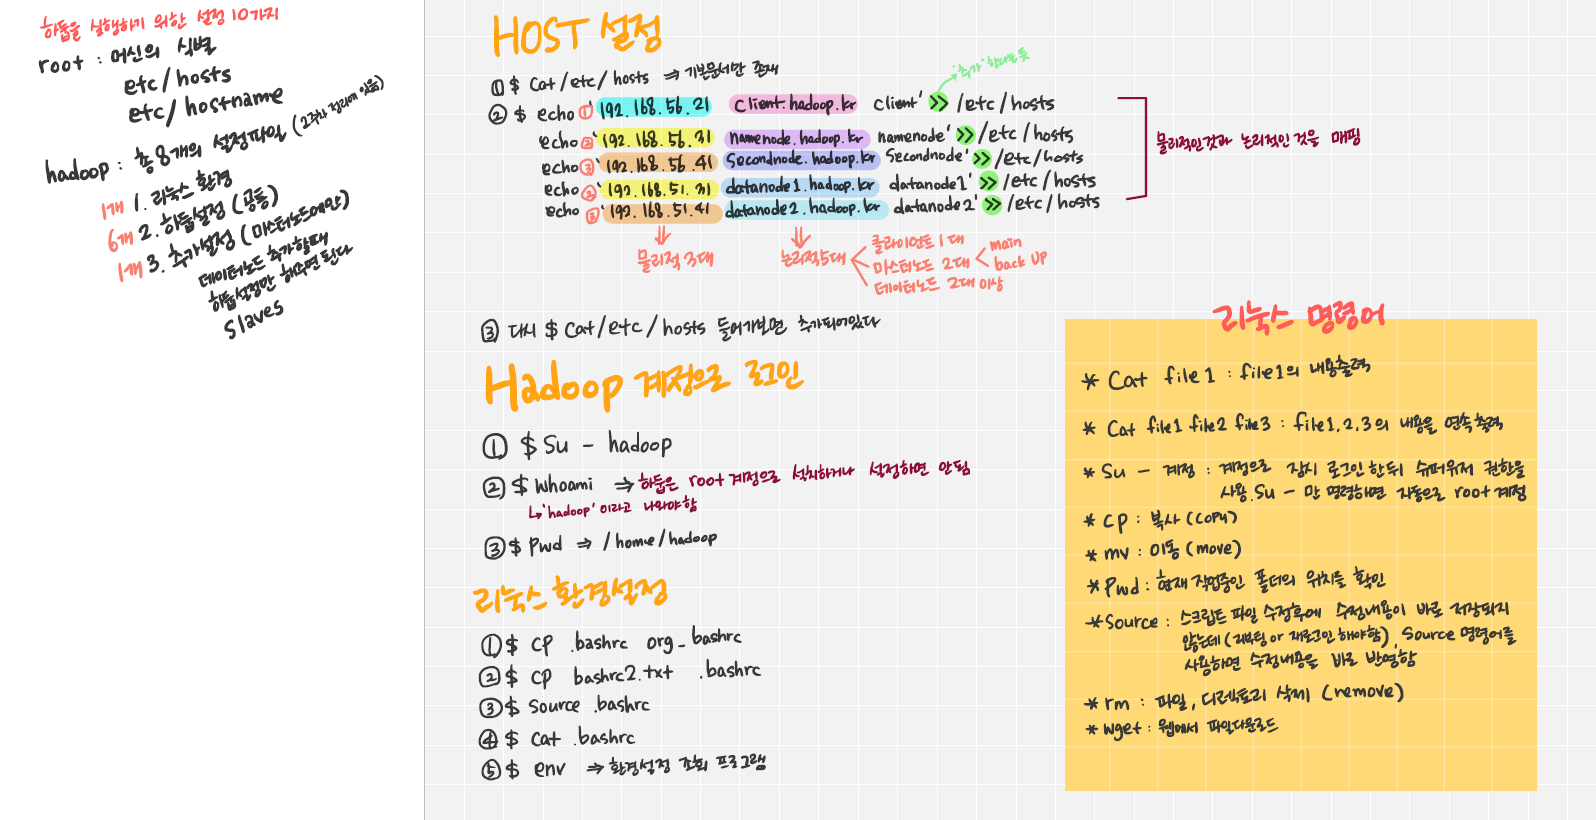 하둡을 실행하기 위한 설정 10가지
root : 머신의 식별
etc/hosts
etc/hostname
hadoop : 총 8개의 설정파일 (2주차 정리에 있음)
1개 1. 리눅스 환경
6개 2. 하둡설정 (공통)
1개 3. 추가설정 (마스터노드에만)
데이터노드 추가할때
하둡설정만 해주면 된다
slaves
HOST 설정
① $ Cat /etc/hosts ⇒ 기본문서만 존재
'추가' 한다는 뜻
② $ echo ① '192.168.56.21 Client.hadoop.kr client' >> /etc/hosts
echo ② '192.168.56.31 namenode.hadoop.kr namenode' >> /etc/hosts
echo ③ '192.168.56.41 Secondnode.hadoop.kr Secondnode' >> /etc/hosts
echo ② '192.168.51.31 datanode1.hadoop.kr datanode1' >> /etc/hosts
echo ③ '192.168.51.41 datanode2.hadoop.kr datanode2' >> /etc/hosts
물리적인것과 논리적인것을 매핑
물리적 3대
논리적 5대
클라이언트 1대
마스터노드 2대
main
back UP
데이터노드 2대 이상
③ 다시 $ Cat/etc/hosts 들어가보면 추가되어있다
Hadoop 계정으로 로그인
① $ Su - hadoop
② $ Whoami ⇒ 하둡은 root 계정으로 설치하거나 설정하면 안됨
↳ 'hadoop' 이라고 나와야함
③ $ Pwd ⇒ /home/hadoop
리눅스 환경설정
① $ CP .bashrc org_bashrc
② $ CP bashrc2.txt .bashrc
③ $ Source .bashrc
④ $ Cat .bashrc
⑤ $ env ⇒ 환경설정 조회 프로그램
리눅스 명령어
* Cat file1 : file1의 내용출력
* Cat file1 file2 file3 : file1,2,3의 내용을 연속출력
* Su - 계정 : 계정으로 잠시 로그인 한뒤 슈퍼유저 권한을
사용. Su - 만 명령하면 자동으로 root계정
* CP : 복사 (copy)
* mv : 이동 (move)
* Pwd : 현재 작업중인 폴더의 위치를 확인
* Source : 스크립트 파일 수정후에 수정내용이 바로 저장되지
않는데 (리부팅 or 재로그인 해야함), Source 명령어를
사용하면 수정내용을 바로 반영함
* rm : 파일, 디렉토리 삭제 (remove)
* wget : 웹에서 파일다운로드